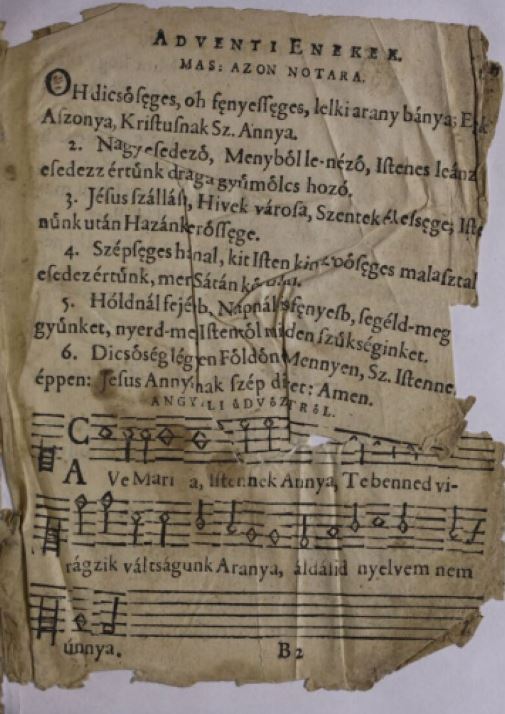 ADVENTI ENEKEK.
MAS: AZON NOTARA.
OH dicsőséges, oh fęnyességes, lelki arany bánya; Ęg
Aszonya, Kristusnak Sz. Annya.
2. Nagy esedező, Menyből le-néző, Istenes leánz
esedezz értünk draga gyümőlcs hozó.
3. Jésus szállása, Hivek városa, Szentek ékessęge; Iste
nünk után Hazánk erőssęge.
4. Szépséges hajnal, kit Isten malasztal
esedez értünk, mer Sátán
5. Hóldnál fejéb, Napnál fsęnyesb, segéld-meg
gyünket, nyerd-me Istentől minden szükséginket.
6. Dicsőség légyen Földön Mennyen, Sz. Istenne
éppen: Jesus Annyának szép Amen.
ANGYALI
AVe Mari a, Istennek Annya, Te benned vi-
rágzik váltságunk Aranya, áldálid nyelvem nem
únnya. B2